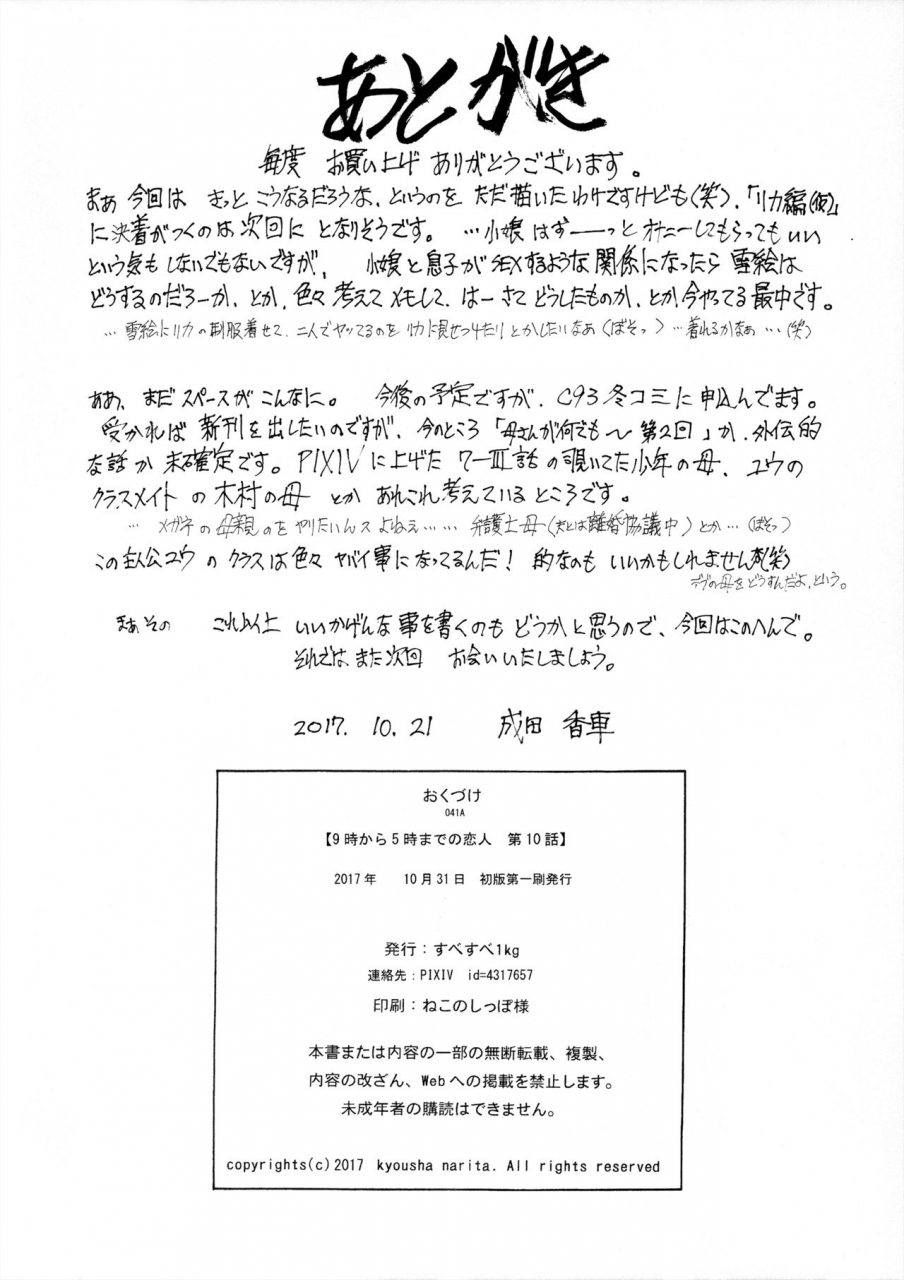 あとがき
毎度 お買い上げ ありがとうございます。
まぁ 今回は きっと こうなるだろうな、というのを ただ描いたわけですけども(笑)、「リカ編(仮)」
に決着がつくのは次回に となりそうです。 …小娘はずーーっとオナニーしてもらってもいい
という気もしないでもないですが、 小娘と息子がSEXするような関係になったら 雪絵は
どうするのだろーか、とか、色々考えてメモして、はーさてどうしたものか、とか今やってる最中です。
… 雪絵にリカの制服着せて、二人でヤッてるのを リカに見せつけたり とかしたいなぁ(ぼそっ) …着れるかなぁ …(笑)
ああ、まだスペースが こんなに。 今後の予定ですが、C93冬コミに申込んでます。
受かれば 新刊を出したいのですが、今のところ「母さんが何でも〜 第2回」か、外伝的
な話か 未確定です。PIXIVに上げた 7-III話の覗いてた少年の母、ユウの
クラスメイトの木村の母 とか あれこれ考えているところです。
… メガネの母親のをやりたいんスよねぇ…… 弁護士母(夫とは離婚協議中)とか…(ぼそっ)
この主人公ユウのクラスは色々ヤバイ事になってるんだ! 的なのもいいかもしれませんが(笑)
デブの母をどうすんだよ、という。
まぁその これ以上 いいかげんな事を書くのも どうかと思うので、今回はこのへんで。
それではまた次回 お会いいたしましょう。
2017. 10. 21 成田 香車
おくづけ
041A
【9時から5時までの恋人 第10話】
2017年 10月31日 初版第一刷発行
発行：すべすべ1kg
連絡先：PIXIV id=4317657
印刷：ねこのしっぽ様
本書または内容の一部の無断転載、複製、
内容の改ざん、Webへの掲載を禁止します。
未成年者の購読はできません。
copyrights(c)2017 kyousha narita. All rights reserved